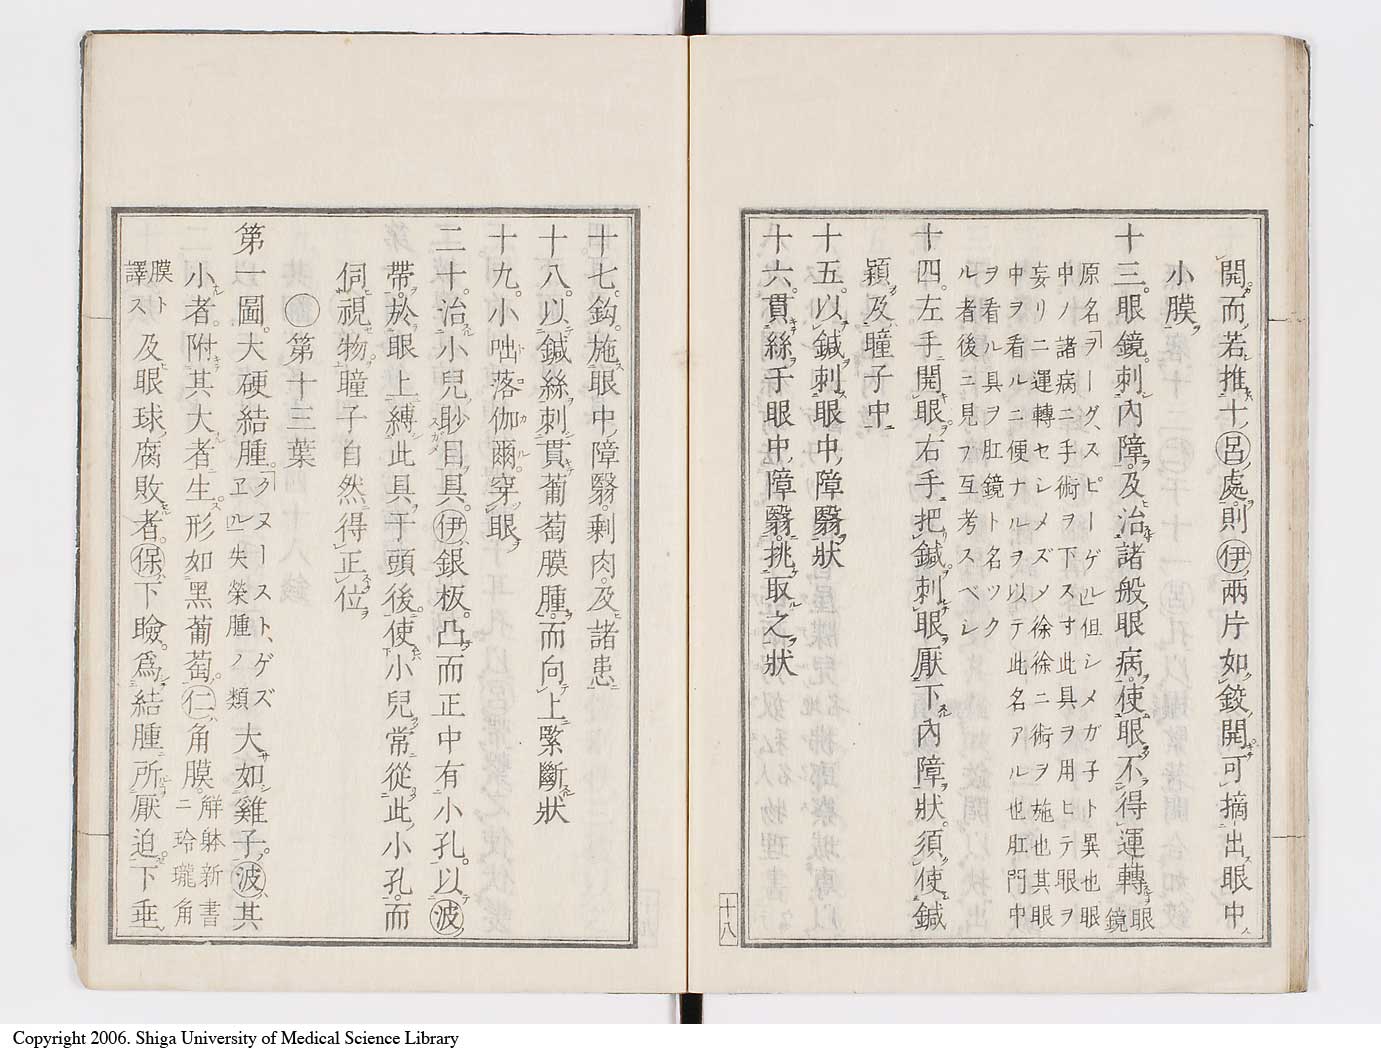 開而若推十呂處則伊兩片如鉸開可摘出眼中
小膜
十三眼鏡刺內障及治諸般眼病使眼不得運轉眼鏡
原名「ヲーグスピーゲル」但シメガ子ト異也眼
中ノ諸病ニ手術ヲ下スオ此具ヲ用ヒテ眼ヲ
妄リニ運轉セシメズメ徐徐ニ術ヲ施也其眼
中ヲ看ルニ便ナルヲ以テ此名アル也肛門中
ヲ看ル具ヲ肛鏡ト名ツク
ル者後ニ見フ互考スベシ
十四左手開眼右手把鍼刺眼厭下內障狀須使鍼
穎及瞳子中
十五以鍼刺眼中障翳狀
十六貫絲于眼中障翳挑取之狀
十八
十七鈎施眼中障翳剩肉及諸患
十八以鍼絲刺貫葡萄膜腫而向上緊斷狀
十九小咄落伽爾穿眼
二十治小兒眇目具伊銀板凸而正中有小孔以波
帶於眼上縛此具于頭後使小兒常從此小孔而
伺視物瞳子自然得正位
〇第十三葉
第一圖大硬結腫「クヌースト、ゲズヱル」失榮腫ノ類大如雞子波其
小者附其大者生形如黑葡萄仁角膜解體新書ニ玲瓏角
膜ト譯ス及眼球腐敗者保下瞼爲結腫所厭迫下垂
Copyright 2006. Shiga University of Medical Science Library